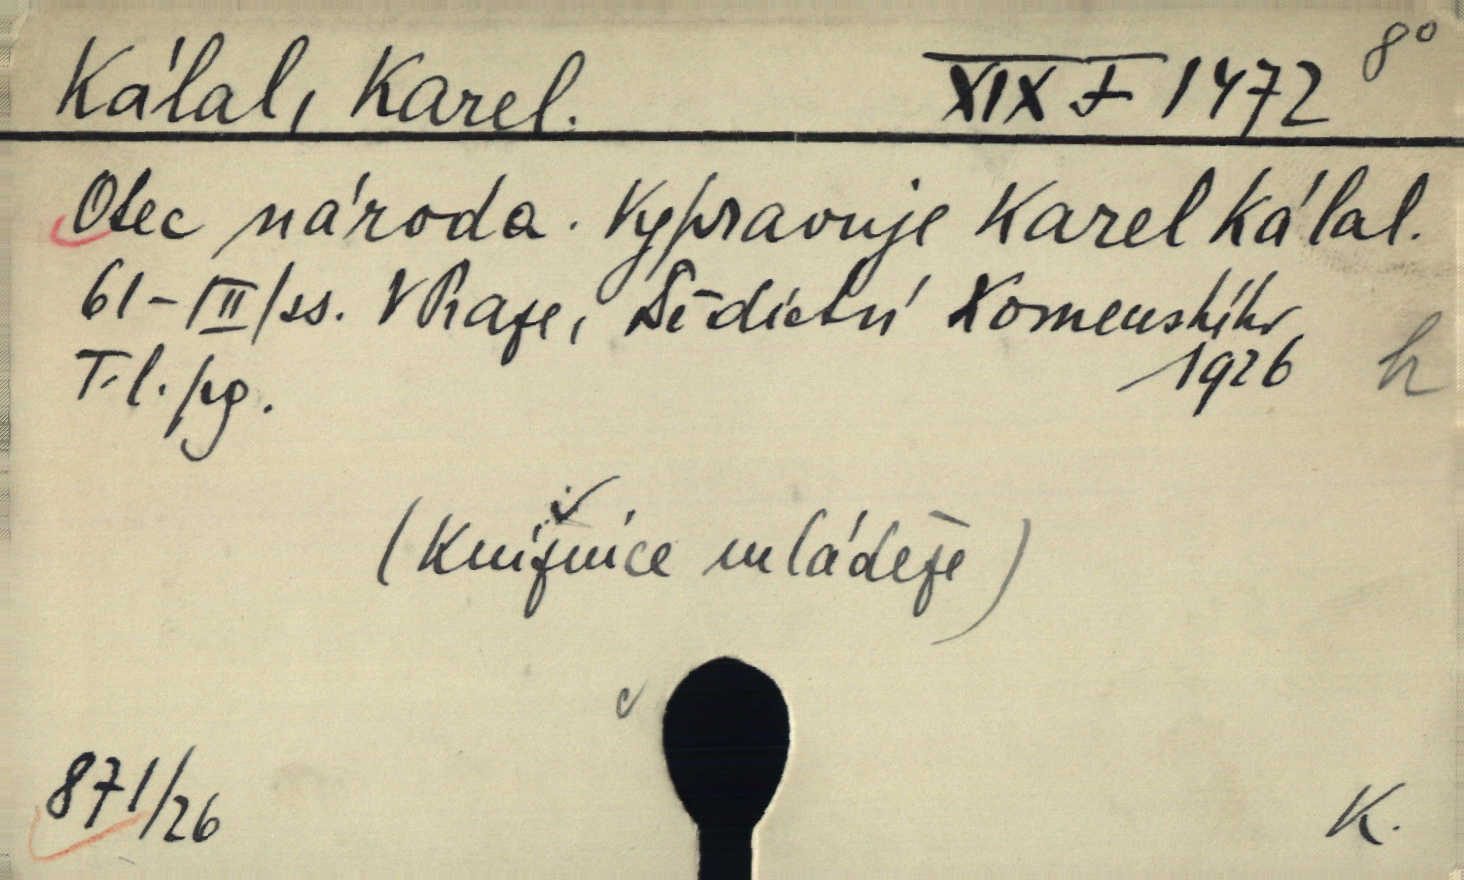 Kálal, Karel. XIX F 1472 8°
Otec národa. Vypravuje Karel Kálal.
61-III/ss. V Praze, Dědictví Komenského
1926 h
T.l.pg.
(Knižnice mládeže)
871/26
K.